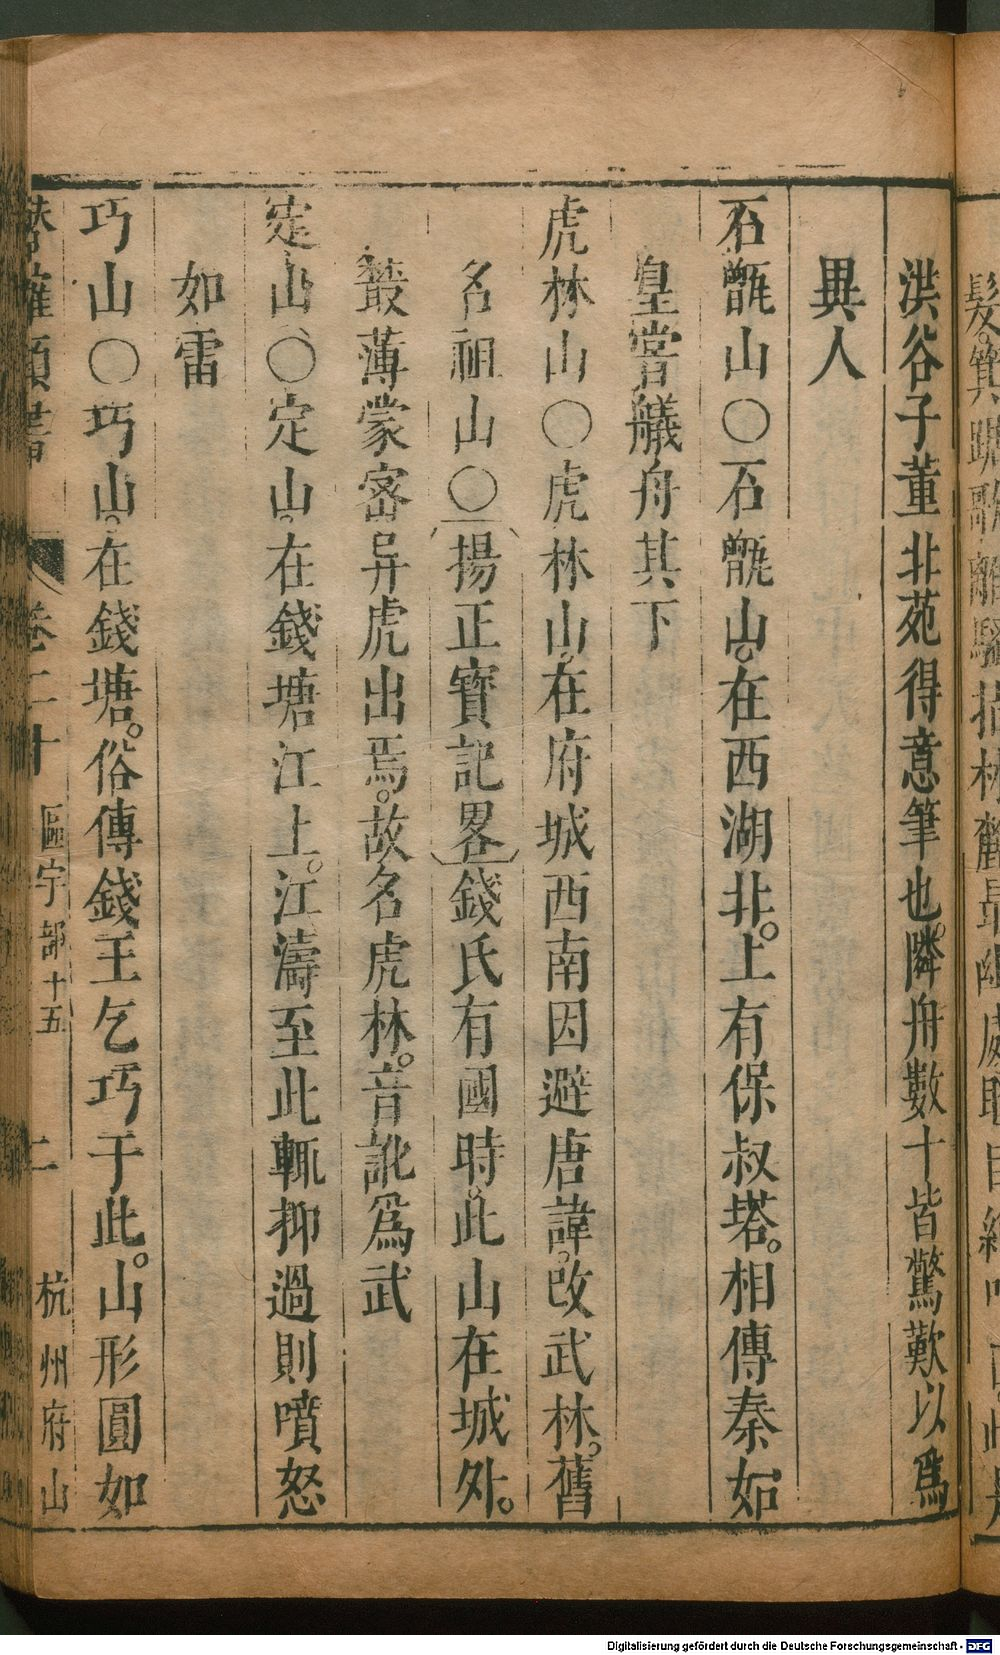 洪谷子董北苑得意筆也隣舟數十皆驚歎以爲
異人
石甑山〇石甑山。在西湖北。上有保叔塔。相傳秦始
皇嘗艤舟其下
虎林山〇虎林山。在府城西南因避唐諱。改武林。舊
名祖山〇(揚正寳記畧)錢氏有國時。此山在城外。
叢薄蒙密异虎出焉。故名虎林。音訛爲武
定山〇定山。在錢塘江上。江濤至此輒抑過則噴怒
如雷
巧山〇巧山。在錢塘。俗傳錢王乞巧于此。山形圓如
類書 卷二十 區宇部十五 二 杭州府山
Digitalisierung gefördert durch die Deutsche Forschungsgemeinschaft - DFG